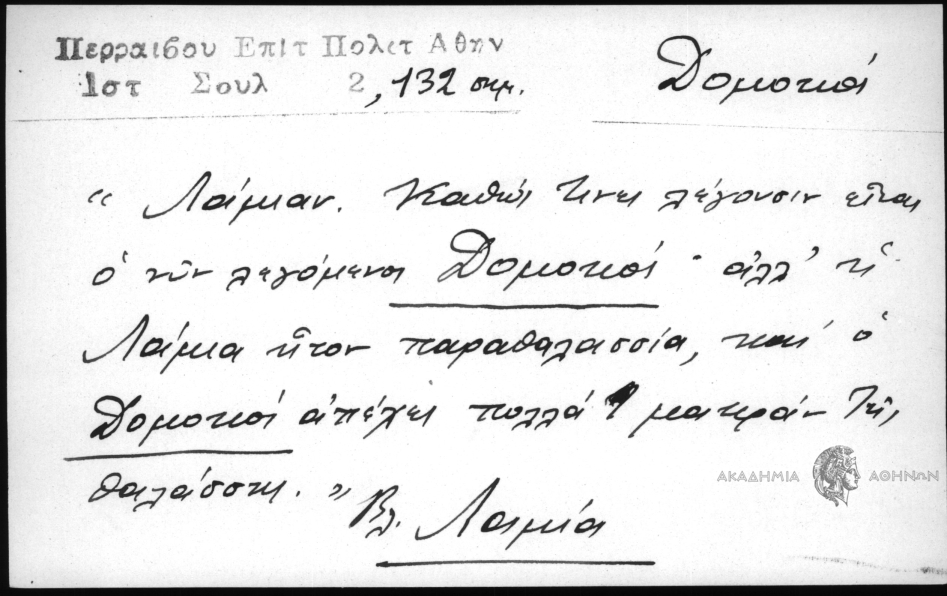 Περραιβου Επιτ Πολετ Αθην
Ιστ Σουλ 2, 132 σημ.
Δομοκός
“ Λάμιαν. Καθώς τινες λέγουσιν εἶναι
ὁ νῦν λεγόμενος Δομοκός · ἀλλ' ἡ
Λάμια ἦτον παραθαλασσία, καί ὁ
Δομοκός ἀπέχει πολλά μακράν τῆς
θαλάσσης. ” Βλ. Λαμία
ΑΚΑΔΗΜΙΑ ΑΘΗΝΩΝ